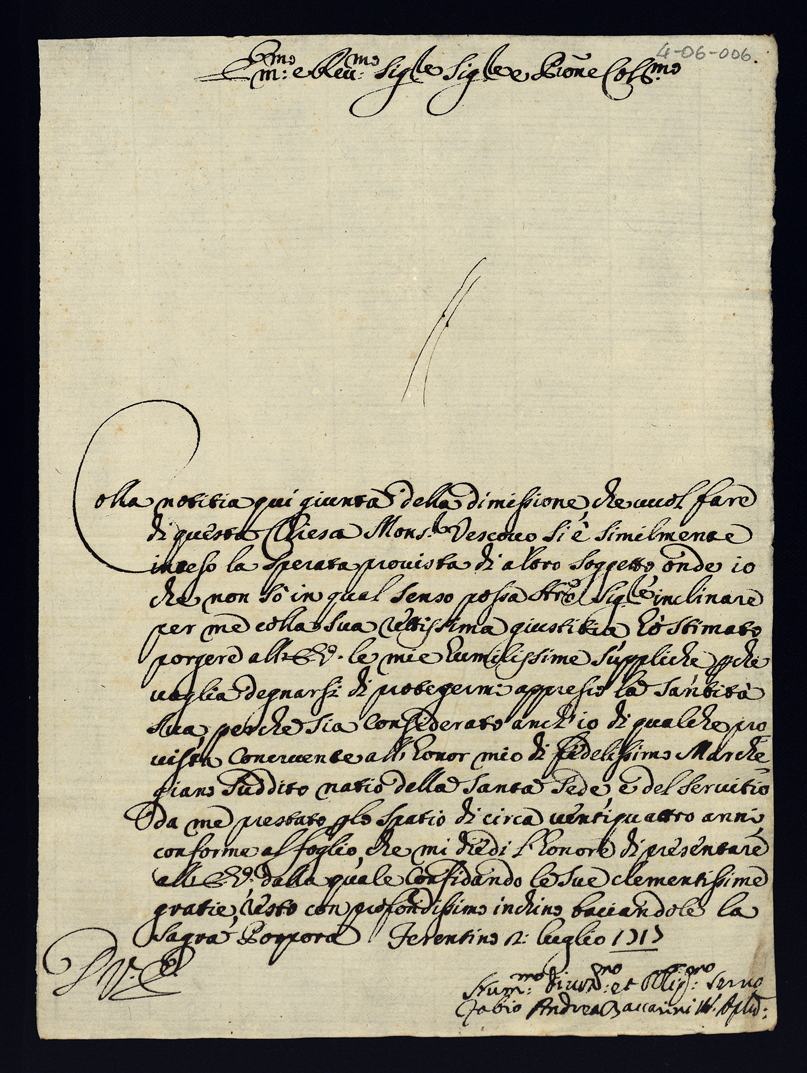 4-06-006.
Em:mo e Reu:mo Sigle Sigle e Prone Coll:mo
Colla notitia qui giunta della dimissione, che vuol fare
di questa Chiesa Mons.r Vescovo si è similmente
inteso la sperata provista di altro soggetto onde io
che non so in qual senso possa inclinare
per me colla sua rettissima giustitia hò stimato
porgere all' le mie humilissime suppliche pche
voglia degnarsi di protegermi appresso la Santità
sua perche sia considerato anch'io di qualche pro
vista concernente all'honor mio di fidelissimo Marche
giano suddito natio della Santa Sede e del servitio
da me prestato plo spatio di circa ventiquattro anni,
conforme al foglio, che mi diedi l'honore di presentare
all' dalla quale confidando le sue clementissime
gratie, resto con profondissimo inchino baciandole la
Sagra Porpora Ferentino 2: luglio 1717
D V. E
Hum:mo Diuot:mo et Oblig:mo seruo
Fabio Andrea Baccarini